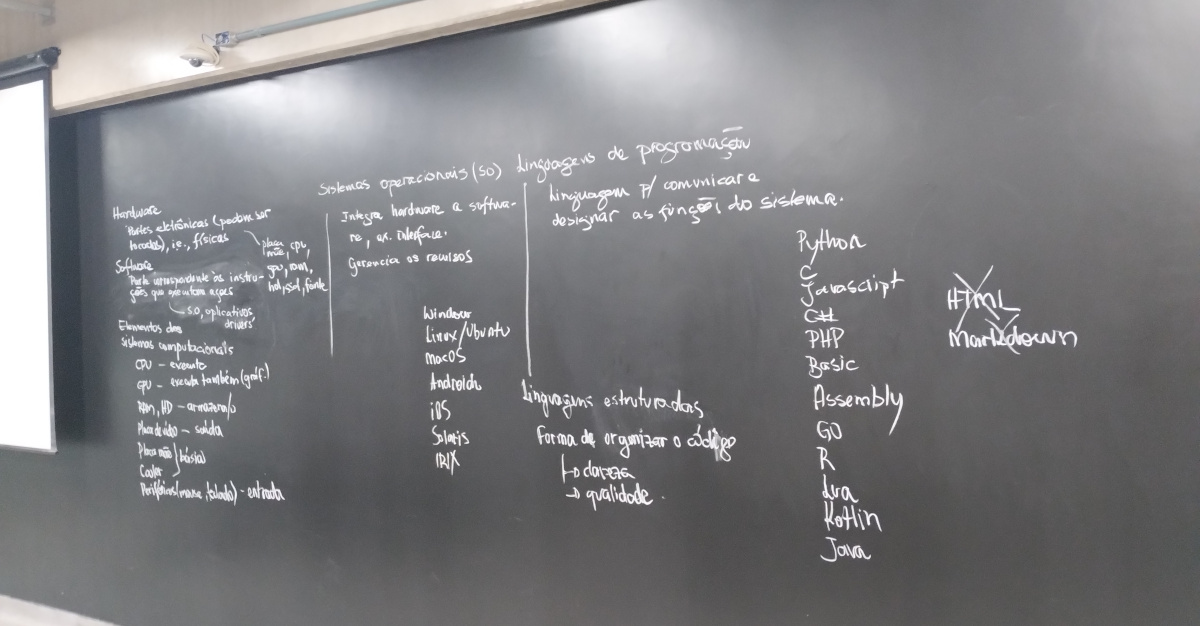 Hardware
Partes eletrônicas (podem ser
tocadas), i.e., físicas
placa
mãe, cpu,
gpu, ram,
hd, ssd, fonte
Software
Parte correspondente às instru-
ções que executam ações
s.o, aplicativos,
drivers
Elementos dos
sistemas computacionais
CPU - executa
GPU - executa também (gráf.)
RAM, HD - armazena/o
Placa de vídeo - saída
Placa mãe
Cooler
Periféricos (mouse, teclado) - entrada
Sistemas operacionais (SO)
Integra hardware a softwa-
re, ex. interface.
Gerencia os recursos
Windows
Linux/Ubuntu
MacOS
Android
iOS
Solaris
IRIX
Linguagens de programação
Linguagem p/ comunicar e
designar as funções do sistema.
Linguagens estruturadas
Forma de organizar o código
→ clareza
→ qualidade.
Python
C
Javascript
C#
PHP
Basic
Assembly
GO
R
Lua
Kotlin
Java
HTML
Markdown